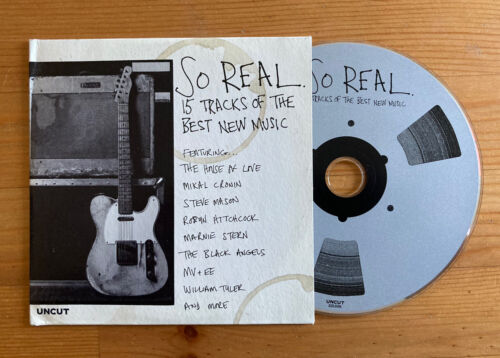 SO REAL.
15 TRACKS OF THE
BEST NEW MUSIC
FEATURING...
THE HOUSE OF LOVE
MIKAL CRONIN
STEVE MASON
ROBYN HITCHCOCK
MARNIE STERN
THE BLACK ANGELS
MV + EE
WILLIAM TYLER
AND MORE
UNCUT
SO REAL.
TRACKS OF THE BEST NEW MUSIC
UNCUT